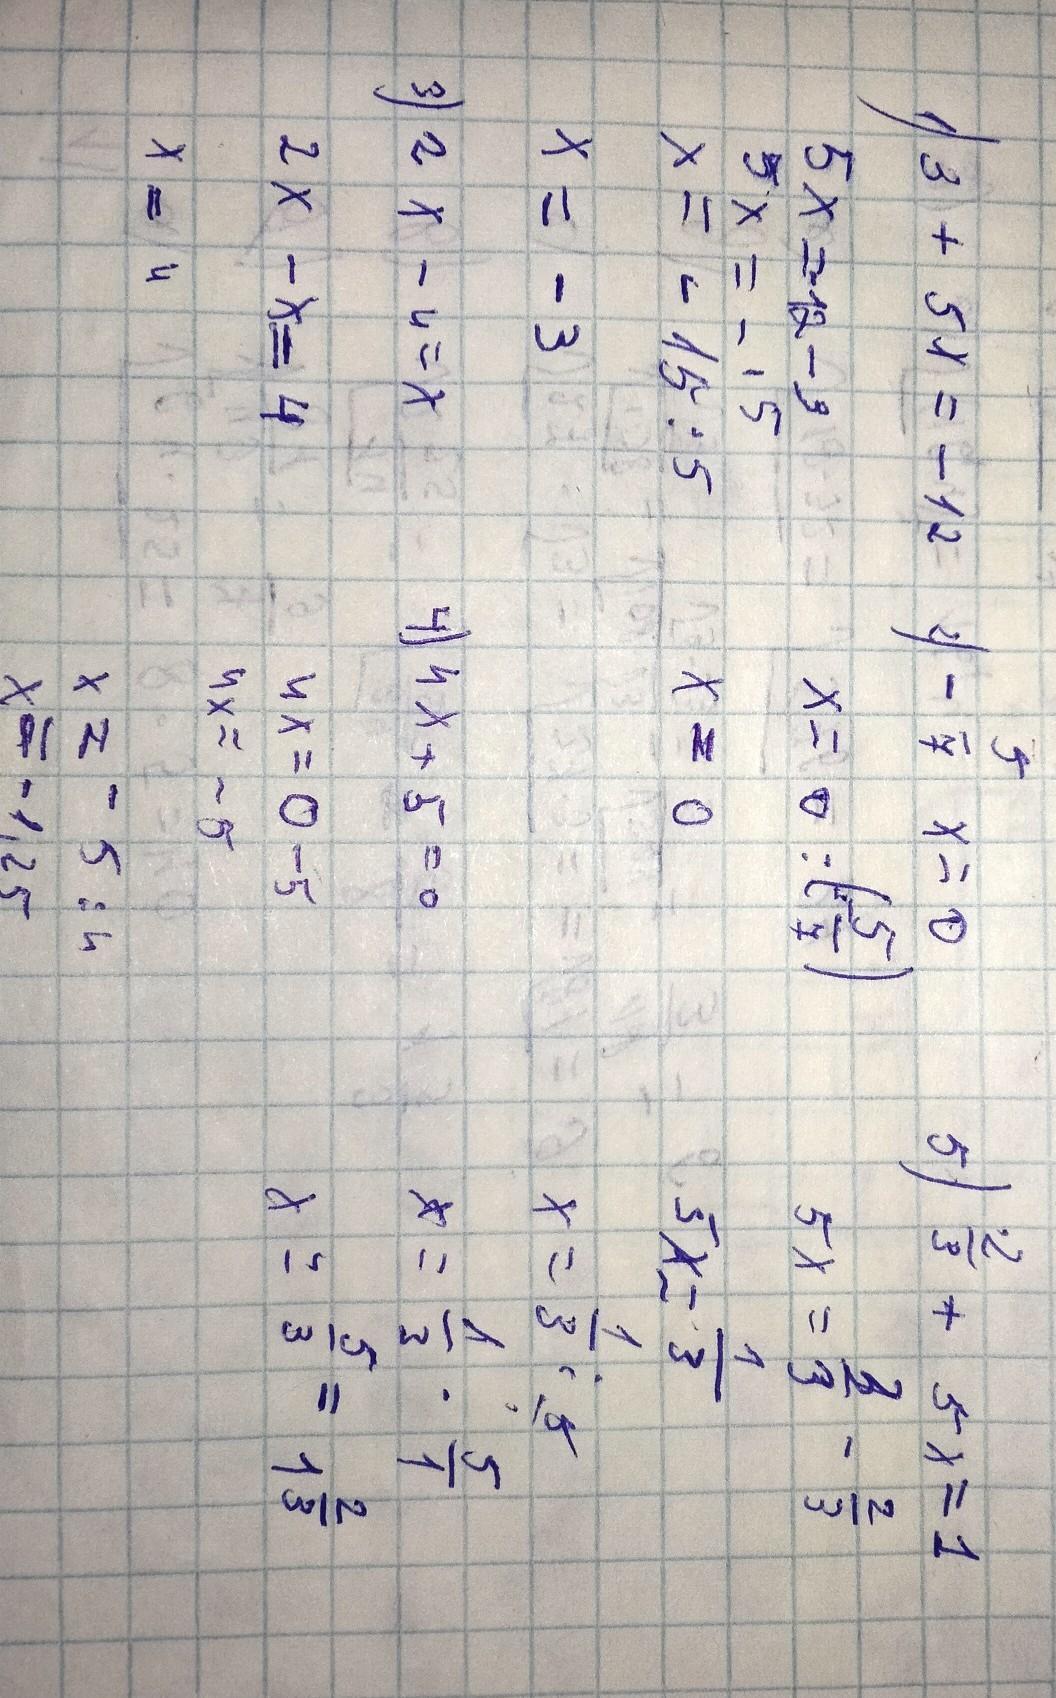 1) 3 + 5x = -12
5x = -12 - 3
5x = -15
x = -15 : 5
x = -3
2) -5/7 x = 0
x = 0 : (-5/7)
x = 0
3) 2x - 4 = x
2x - x = 4
x = 4
4) 4x + 5 = 0
4x = 0 - 5
4x = -5
x = -5 : 4
x = -1,25
5) 2/3 + 5x = 1
5x = 3/3 - 2/3
5x = 1/3
x = 1/3 : 5
x = 1/3 : 5/1
x = 5/3 = 1 2/3